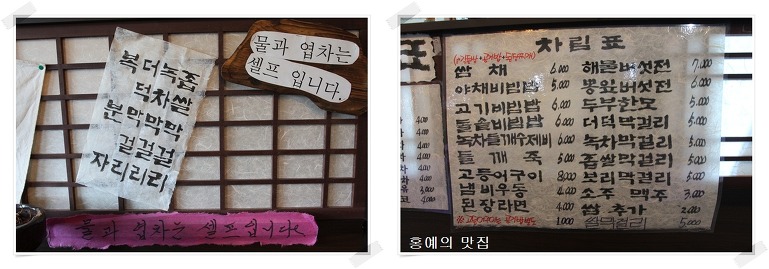 복더녹좁
덕차쌀
분막막막
걸걸걸
자리리리
물과 엽차는
셀프 입니다.
물과 엽차는 셀프입니다
차림표
쌈 채 6,000
야채비빔밥 6,000
고기비빔밥 6,000
돌솥비빔밥 6,000
녹차들깨수제비 6,000
들 깨 죽 5,000
고등어구이 8,000
냄비우동 4,000
된장라면 4,000
1,000
해물버섯전 7,000
5,000
두부한모 5,000
더덕막걸리 5,000
녹차막걸리 5,000
좁쌀막걸리 5,000
보리막걸리 5,000
소주 맥주 3,000
쌈 추가 2,000
쌀막걸리 5,000
홍예의 맛집